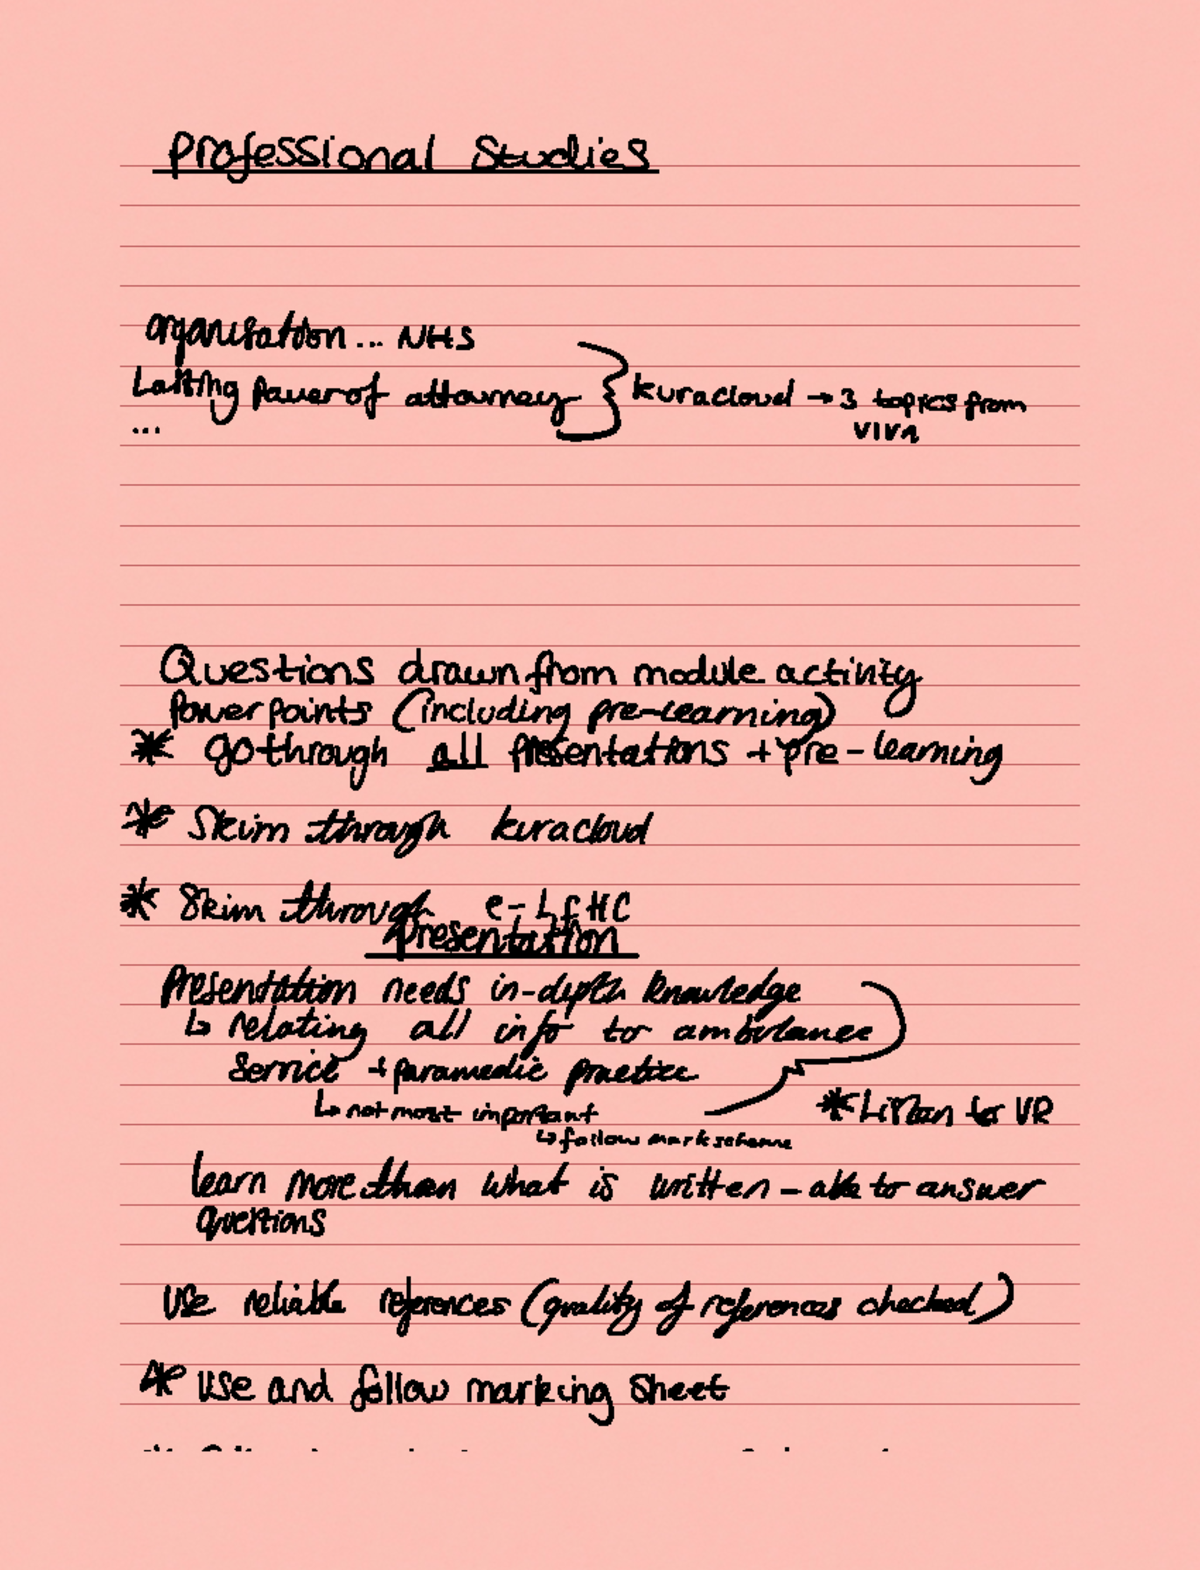 Professional Studies
organisation... NHS
Lasting Power of attorney } kuracloud → 3 topics from
... VIVA
Questions drawn from module activity
Powerpoints (including pre-learning)
* go through all presentations + pre-learning
* Skim through kuracloud
* Skim through e-LfHC
Presentation
Presentation needs in-depth knowledge
↳ relating all info to ambulance
service + paramedic practice
↳ not most important * to VR
↳ follow mark scheme
learn more than what is written - able to answer
questions
Use reliable references (quality of references checked)
* Use and follow marking sheet